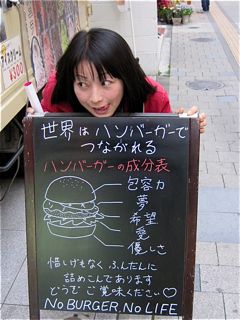 アイスクリーム
¥300
世界はハンバーガーで
つながれる
ハンバーガーの成分表
包容力
夢
希望
愛
優しさ
惜しげもなく ふんだんに
詰めこんであります
どうぞ ご賞味ください♡
NO BURGER. NO LIFE